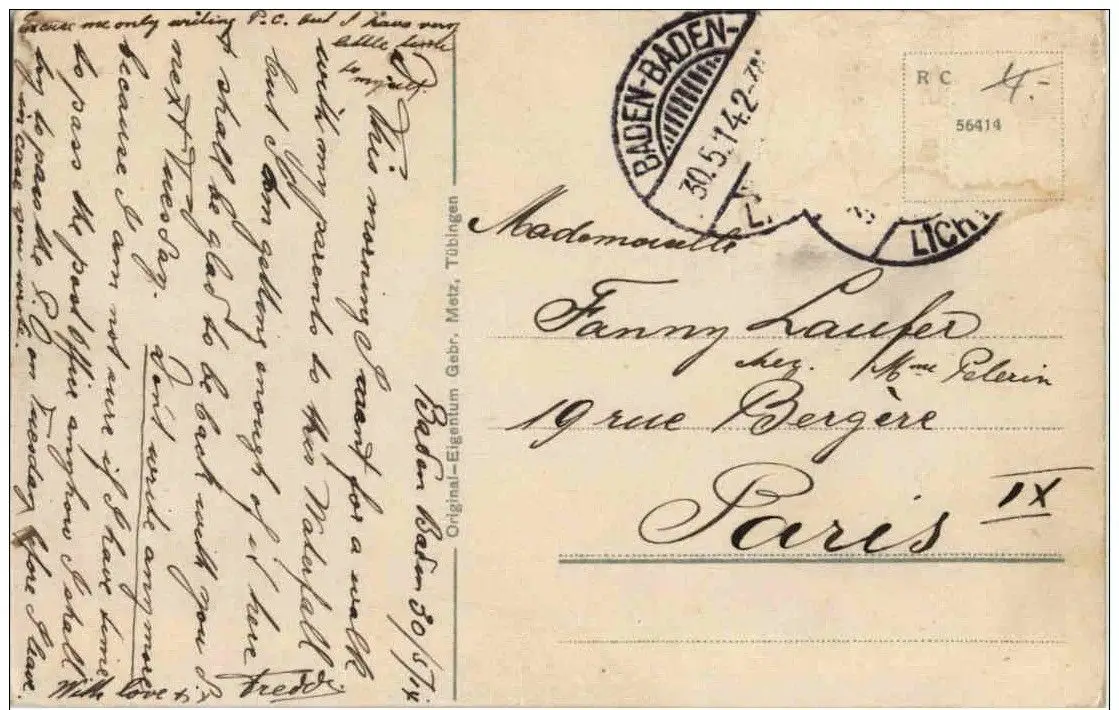 Excuse me only writing P.C. but I have very
little time
to
myself.
Baden Baden 30/5/14
This morning I went for a walk
with my parents to this Waterfall
but I am getting enough of it here
& shall be glad to be back with you
next Tuesday. Don't write anymore
because I am not sure if I have time
to pass the post office anyhow I shall
try to pass the P.O on Tuesday before I leave
in case you wrote.
With love
Freddi
Original-Eigentum Gebr. Metz, Tübingen
BADEN-BADEN-
30.5.14.2-
LICHT
R C
4.-
56414
Mademoiselle
Fanny Laufer
chez. Mme Pelerin
19 rue Bergère
Paris IX